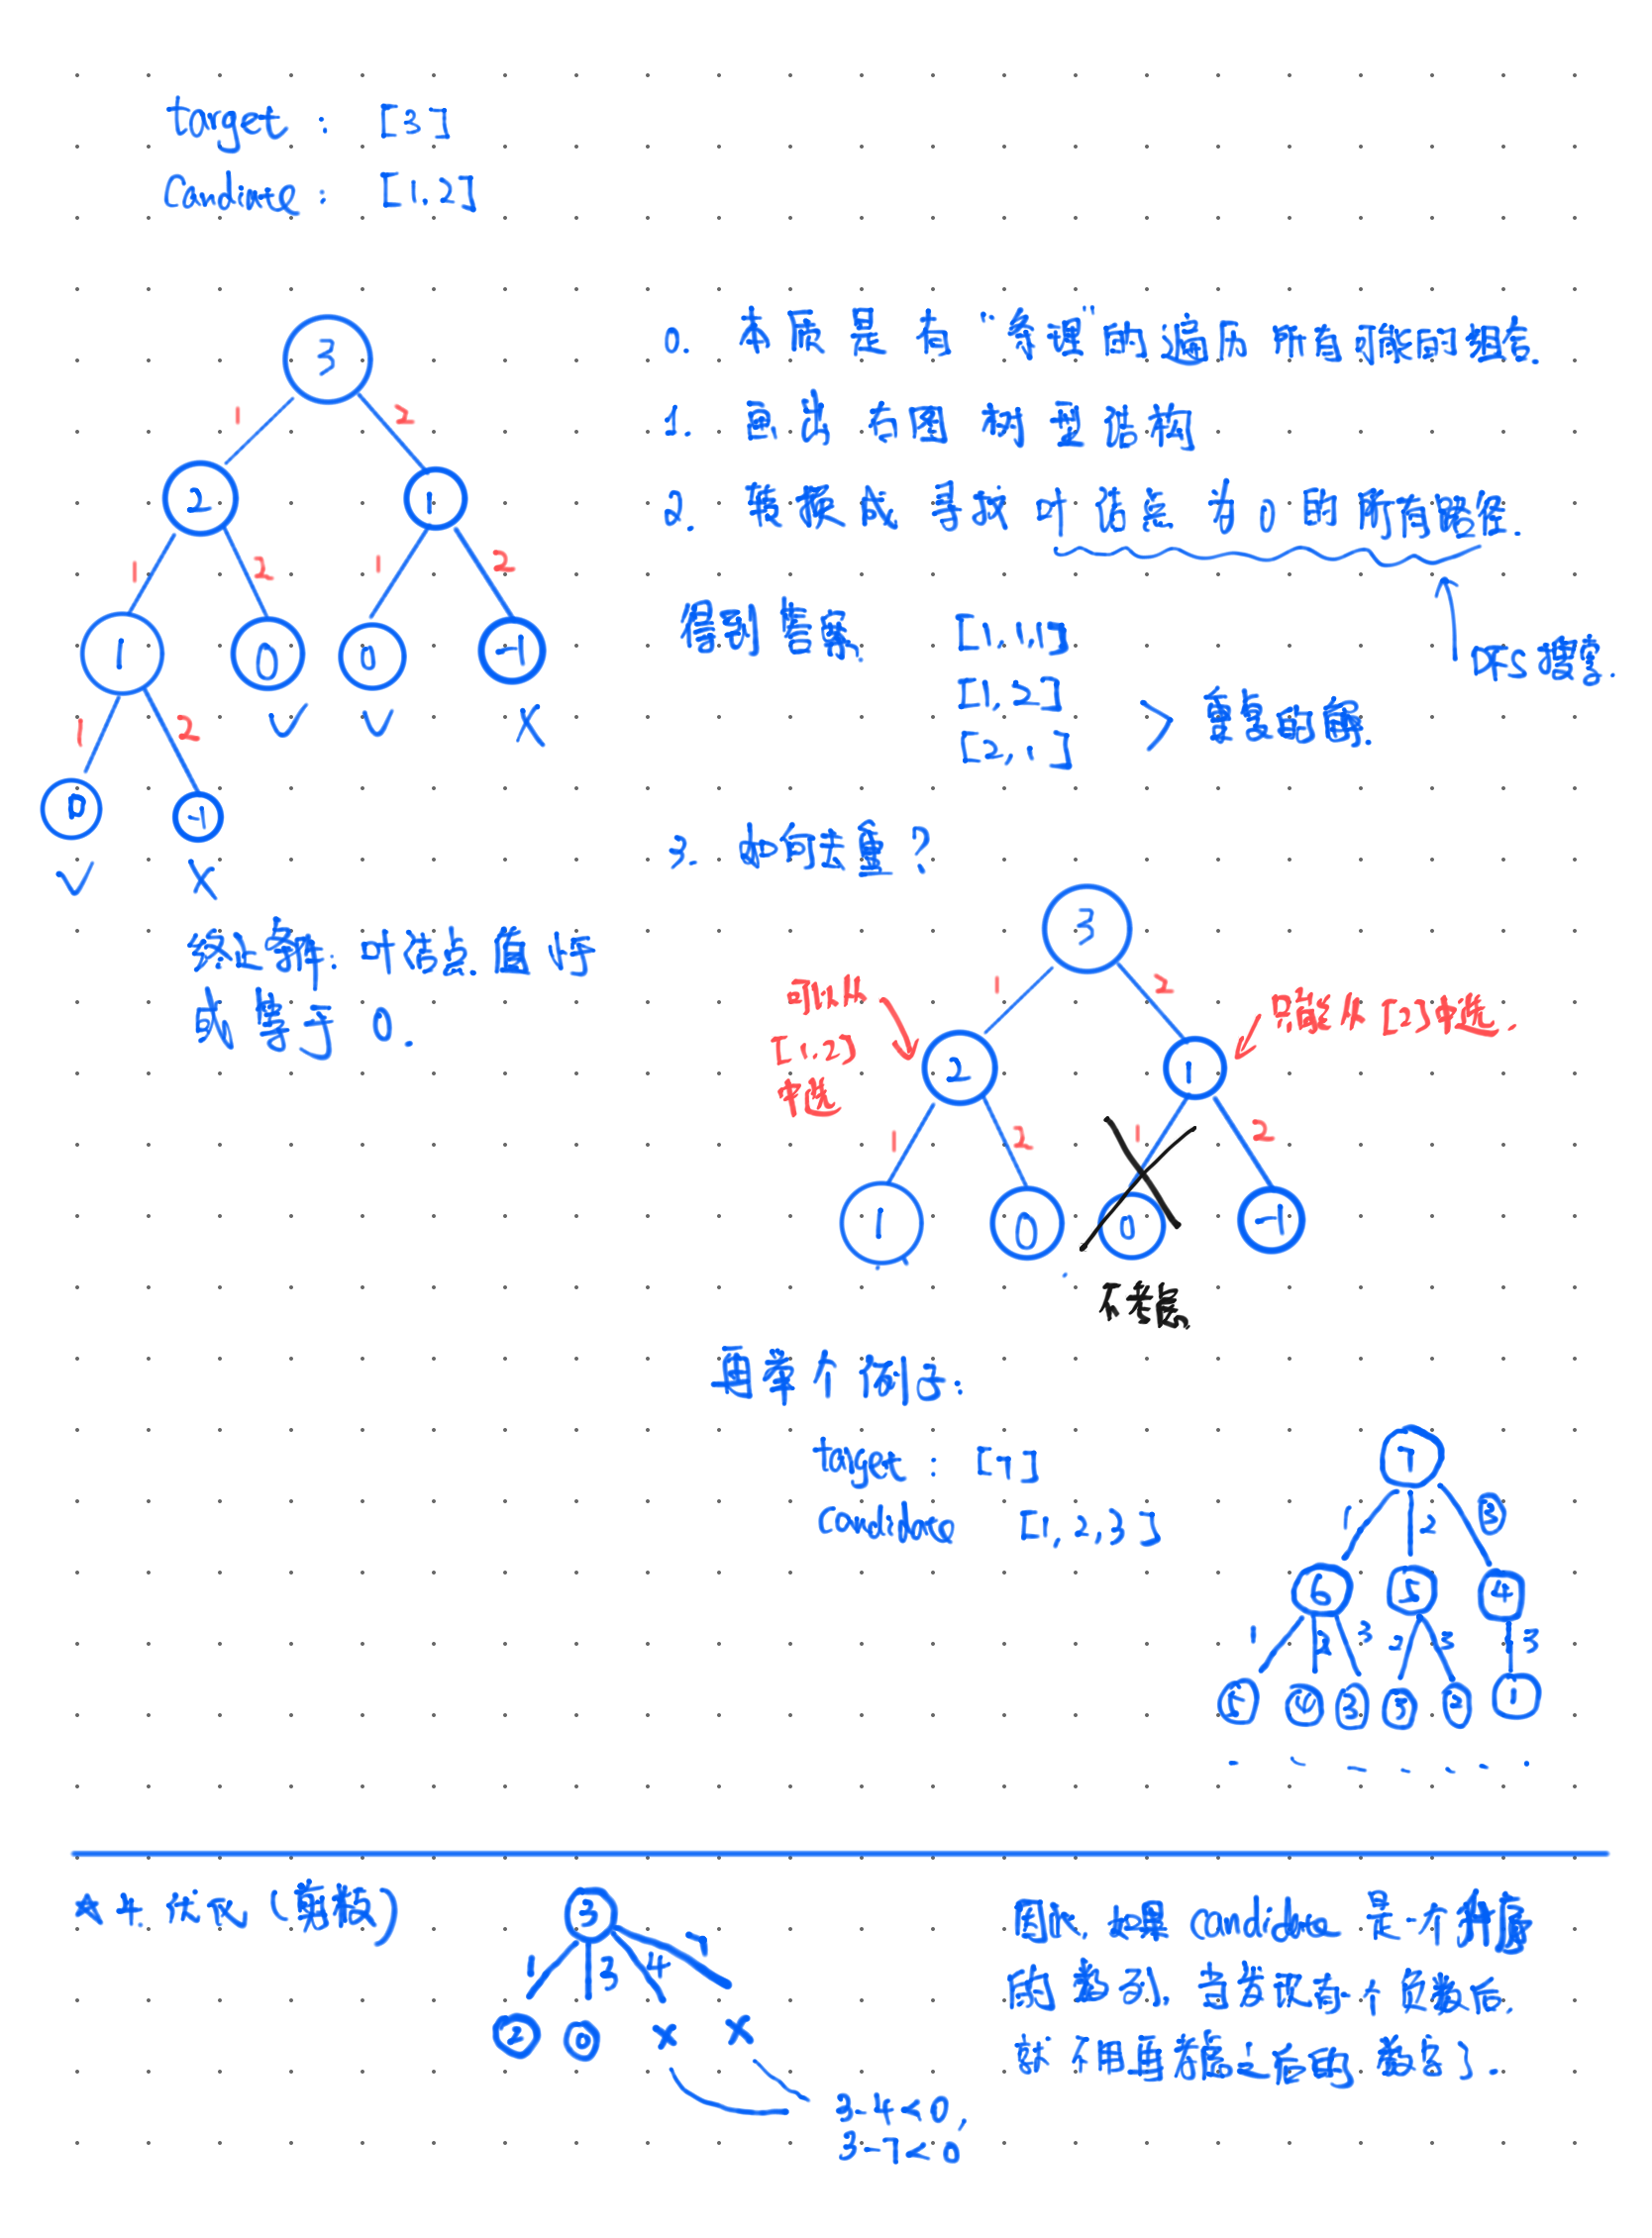 target : [3]
Candiate : [1,2]
3
1 2
2 1
1 2 1 2
1 0 0 -1
√ √ X
1 2
0 -1
√ X
终止条件: 叶结点值小于
或等于 0.
0. 本质是有“条理”的遍历所有可能的组合.
1. 画出右图树型结构
2. 转换成寻找叶结点为0的所有路径.
DFS搜索.
得到答案.
[1,1,1]
[1,2]
[2,1]
> 重复的解.
3. 如何去重?
3
1 2
可以从
[1,2]
中选
只能从[2]中选.
2 1
1 2 1 2
1 0 0 -1
不考虑
再举个例子:
target : [7]
candidate [1,2,3]
7
1 2 3
6 5 4
1 2 3 2 3 3
5 4 3 3 2 1
☆4. 优化(剪枝)
3
1 3 4 7
2 0 x x
3-4<0,
3-7<0
因此, 如果 candidate 是一个升序
的数列, 当发现有一个负数后,
就不用再考虑之后的数字了.